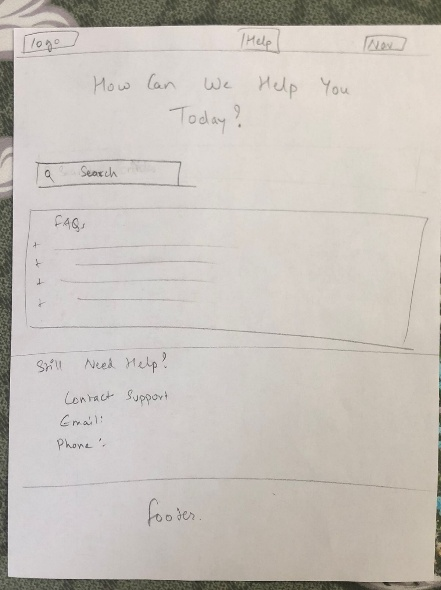 logo
Help
Nav
How Can We Help You
Today?
Search
FAQs
+
+
+
+
Still Need Help?
Contact Support
Email:
Phone:
footer.